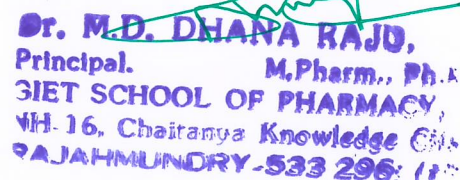 Dr. M.D. DHANA RAJU,
Principal. M.Pharm., Ph.
GIET SCHOOL OF PHARMACY,
NH-16, Chaitanya Knowledge
RAJAHMUNDRY-533 296